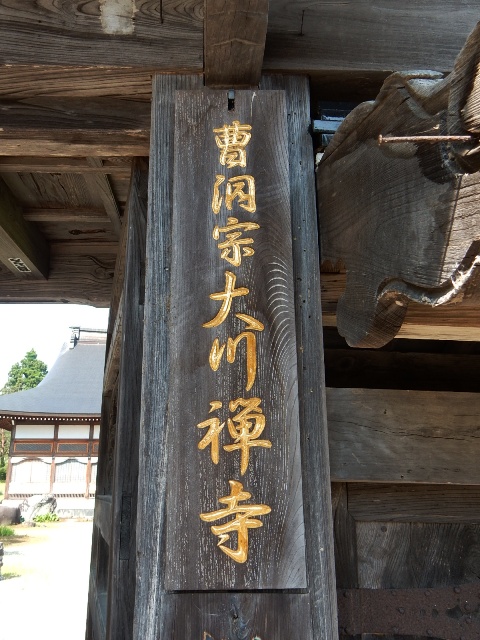 曹洞宗大川禅寺